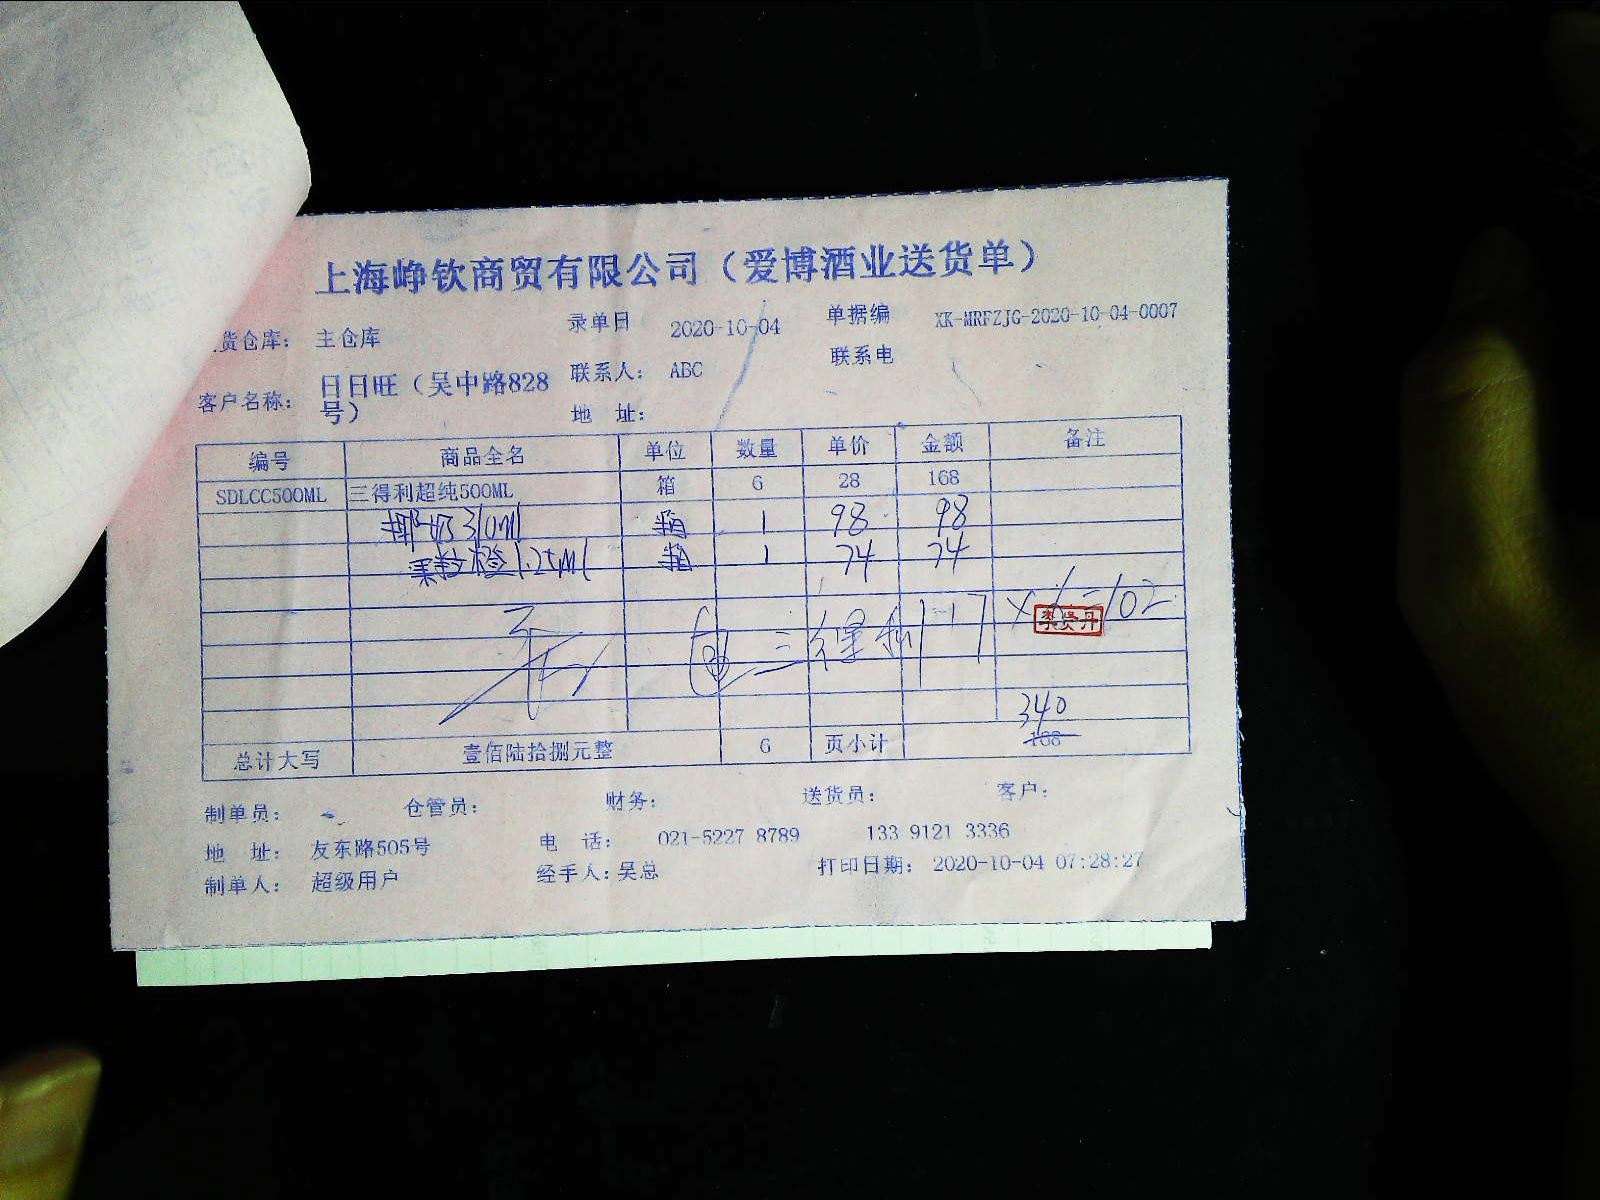 上海峥钦商贸有限公司（爱博酒业送货单）
货仓库： 主仓库 录单日 2020-10-04 单据编 XK-MRFZJG-2020-10-04-0007
客户名称： 日日旺（吴中路828号） 联系人： ABC 联系电
地 址：
编号 商品全名 单位 数量 单价 金额 备注
SDLCC500ML 三得利超纯500ML 箱 6 28 168
椰奶310ml 箱 1 98 98
果粒橙1.25Ml 箱 1 74 74
三得利 17 × 6 = 102
李贤丹
340
总计大写 壹佰陆拾捌元整 6 页小计 168
制单员： 仓管员： 财务： 送货员： 客户：
地 址： 友东路505号 电 话： 021-5227 8789 133 9121 3336
制单人： 超级用户 经手人：吴总 打印日期： 2020-10-04 07:28:27